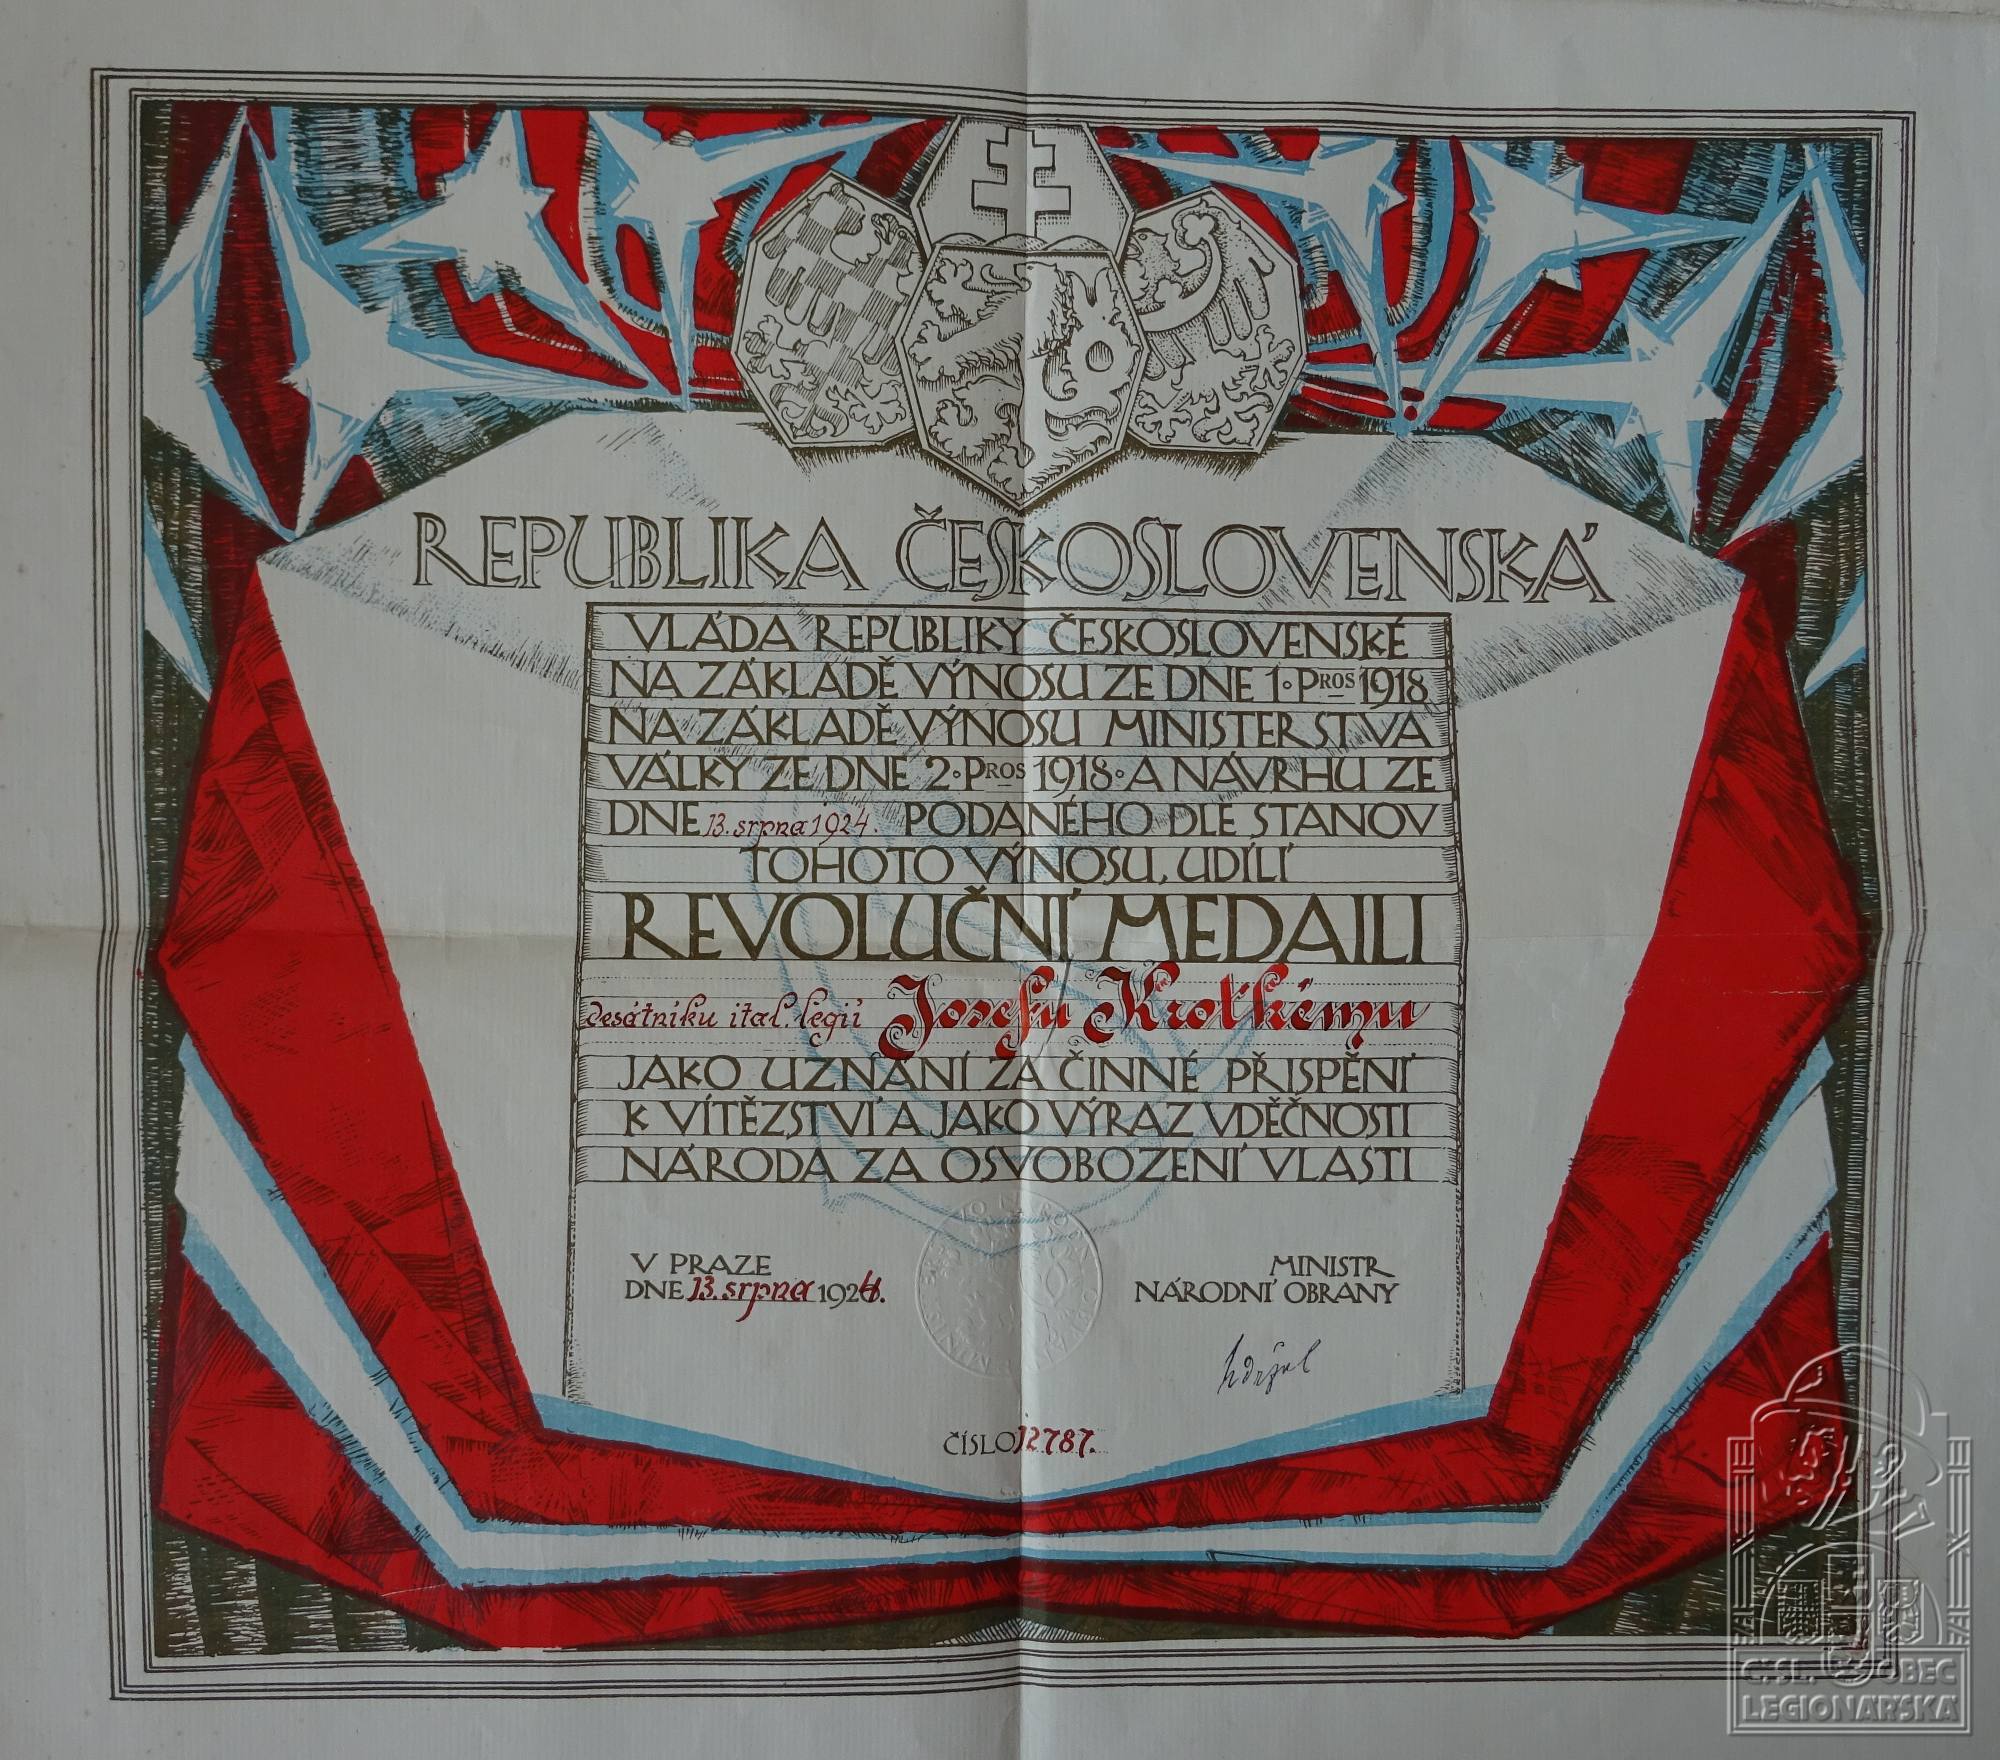 REPUBLIKA ČESKOSLOVENSKÁ
VLÁDA REPUBLIKY ČESKOSLOVENSKÉ
NA ZÁKLADĚ VÝNOSU ZE DNE 1. PROS 1918
NA ZÁKLADĚ VÝNOSU MINISTERSTVA
VÁLKY ZE DNE 2. PROS 1918. A NÁVRHU ZE
DNE 13. srpna 1924. PODANÉHO DLE STANOV
TOHOTO VÝNOSU, UDÍLÍ
REVOLUČNÍ MEDAILI
desátníku ital. legií Josefu Krotkému
JAKO UZNÁNÍ ZA ČINNÉ PŘISPĚNÍ
K VÍTĚZSTVÍ A JAKO VÝRAZ VDĚČNOSTI
NÁRODA ZA OSVOBOZENÍ VLASTI
V PRAZE
DNE 13. srpna 1924.
MINISTR
NÁRODNÍ OBRANY
ČÍSLO 12787.
ČSL. OBEC
LEGIONÁŘSKÁ